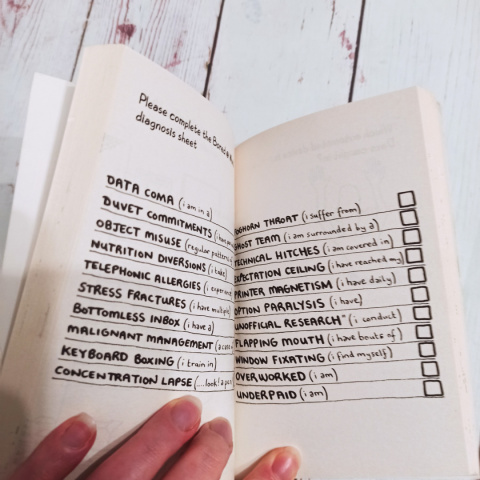 Please complete the Bored at
diagnosis sheet
DATA COMA (i am in a)
DUVET COMMITMENTS (i have
OBJECT MISUSE (regular patterns
NUTRITION DIVERSIONS (i take)
TELEPHONIC ALLERGIES (i experience
STRESS FRACTURES (i have multiple)
BOTTOMLESS INBOX (i have a)
MALIGNANT MANAGEMENT
KEYBOARD BOXING (i train in)
CONCENTRATION LAPSE (....look! a
OGHORN THROAT (i suffer from)
GHOST TEAM (i am surrounded by a)
TECHNICAL HITCHES (i am covered in)
EXPECTATION CEILING (i have reached my)
PRINTER MAGNETISM (i have daily)
OPTION PARALYSIS (i have)
UNOFFICIAL RESEARCH" (i conduct)
FLAPPING MOUTH (i have bouts of)
WINDOW FIXATING (i find myself)
OVERWORKED (i am)
UNDERPAID (i am)